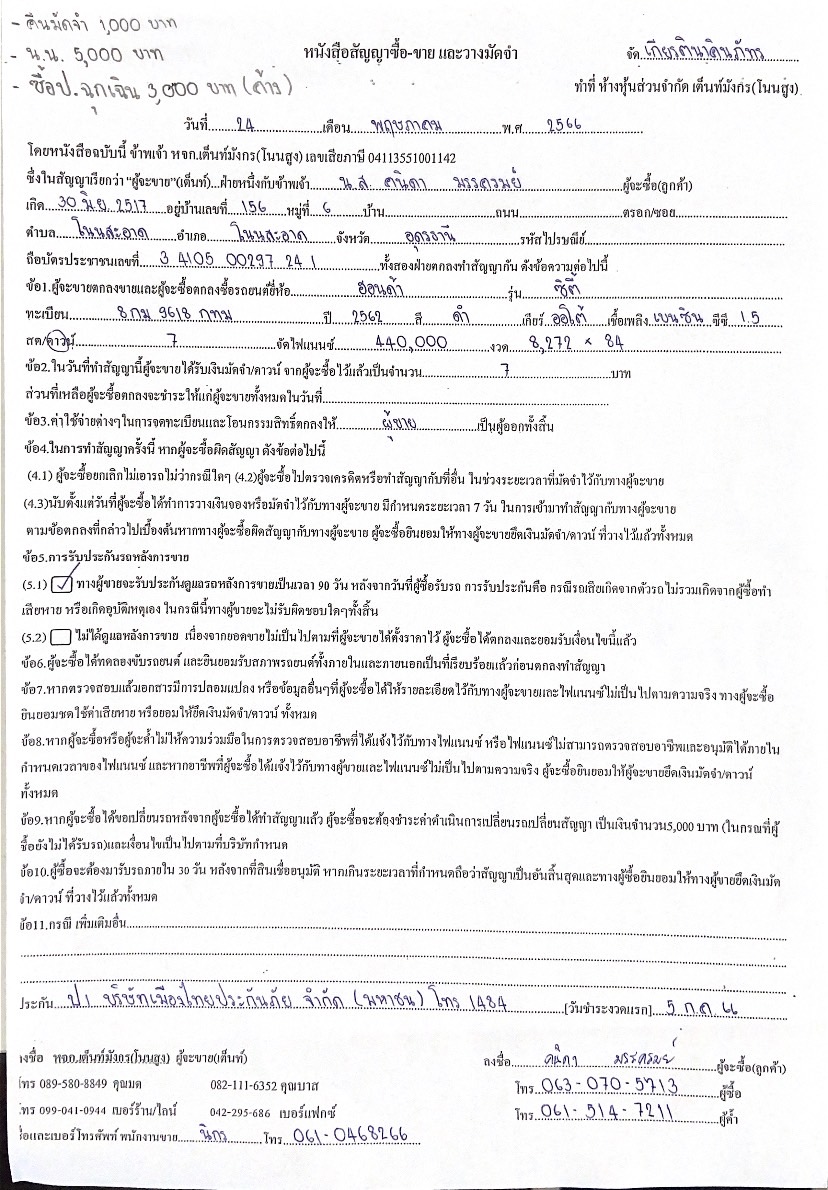 - คืนมัดจำ 1,000 บาท
- น.น. 5,000 บาท
- ซื้อป.ฉุกเฉิน 3,000 บาท (ค้าง)
หนังสือสัญญาซื้อ-ขาย และวางมัดจำ
จัด..เกียรตินาคินภัทร
ทำที่ ห้างหุ้นส่วนจำกัด เต็นท์มังกร(โนนสูง)
วันที่ 24 เดือน พฤษภาคม พ.ศ 2566
โดยหนังสือฉบับนี้ ข้าพเจ้า หจก.เต็นท์มังกร(โนนสูง) เลขเสียภาษี 04113551001142
ซึ่งในสัญญาเรียกว่า "ผู้จะขาย"(เต็นท์)...ฝ่ายหนึ่งกับข้าพเจ้า น.ส. คนิดา มรรครมย์ ผู้จะซื้อ(ลูกค้า)
เกิด 30 มิ.ย. 2517 อยู่บ้านเลขที่ 156 หมู่ที่ 6 บ้าน ถนน ตรอก/ซอย
ตำบล โนนสะอาด อำเภอ โนนสะอาด จังหวัด อุดรธานี รหัสไปรษณีย์
ถือบัตรประชาชนเลขที่ 3 4105 00297 24 1 ทั้งสองฝ่ายตกลงทำสัญญากัน ดังข้อความต่อไปนี้
ข้อ1.ผู้จะขายตกลงขายและผู้จะซื้อตกลงซื้อรถยนต์ยี่ห้อ ฮอนด้า รุ่น ซิตี้
ทะเบียน 8กม 9618 กทม ปี 2562 สี ดำ เกียร์ ออโต้ เชื้อเพลิง เบนซิน ซีซี 1.5
สด/ดาวน์ 7 จัดไฟแนนซ์ 440,000 งวด 8,272 × 84
ข้อ2.ในวันที่ทำสัญญานี้ผู้จะขายได้รับเงินมัดจำ/ดาวน์ จากผู้จะซื้อไว้แล้วเป็นจำนวน 7 บาท
ส่วนที่เหลือผู้จะซื้อตกลงจะชำระให้แก่ผู้จะขายทั้งหมดในวันที่
ข้อ3.ค่าใช้จ่ายต่างๆในการจดทะเบียนและโอนกรรมสิทธิ์ตกลงให้ ผู้ขาย เป็นผู้ออกทั้งสิ้น
ข้อ4.ในการทำสัญญาครั้งนี้ หากผู้จะซื้อผิดสัญญา ดังข้อต่อไปนี้
(4.1) ผู้จะซื้อยกเลิกไม่เอารถไม่ว่ากรณีใดๆ (4.2)ผู้จะซื้อไปตรวจเครดิตหรือทำสัญญากับที่อื่น ในช่วงระยะเวลาที่มัดจำไว้กับทางผู้จะขาย
(4.3)นับตั้งแต่วันที่ผู้จะซื้อได้ทำการวางเงินจองหรือมัดจำไว้กับทางผู้จะขาย มีกำหนดระยะเวลา 7 วัน ในการเข้ามาทำสัญญากับทางผู้จะขาย
ตามข้อตกลงที่กล่าวไปเบื้องต้นหากทางผู้จะซื้อผิดสัญญากับทางผู้จะขาย ผู้จะซื้อยินยอมให้ทางผู้จะขายยึดเงินมัดจำ/ดาวน์ ที่วางไว้แล้วทั้งหมด
ข้อ5.การรับประกันรถหลังการขาย
(5.1) ทางผู้ขายจะรับประกันดูแลรถหลังการขายเป็นเวลา 90 วัน หลังจากวันที่ผู้ซื้อรับรถ การรับประกันคือ กรณีรถเสียเกิดจากตัวรถ ไม่รวมเกิดจากผู้ซื้อทำ
เสียหาย หรือเกิดอุบัติเหตุเอง ในกรณีนี้ทางผู้ขายจะไม่รับผิดชอบใดๆทั้งสิ้น
(5.2) ไม่ได้ดูแลหลังการขาย เนื่องจากยอดขายไม่เป็นไปตามที่ผู้จะขายได้ตั้งราคาไว้ ผู้จะซื้อได้ตกลงและยอมรับเงื่อนไขนี้แล้ว
ข้อ6.ผู้จะซื้อได้ทดลองขับรถยนต์ และยินยอมรับสภาพรถยนต์ทั้งภายในและภายนอกเป็นที่เรียบร้อยแล้วก่อนตกลงทำสัญญา
ข้อ7.หากตรวจสอบแล้วเอกสารมีการปลอมแปลง หรือข้อมูลอื่นๆที่ผู้จะซื้อได้ให้รายละเอียดไว้กับทางผู้จะขายและไฟแนนซ์ไม่เป็นไปตามความจริง ทางผู้จะซื้อ
ยินยอมชดใช้ค่าเสียหาย หรือยอมให้ยึดเงินมัดจำ/ดาวน์ ทั้งหมด
ข้อ8.หากผู้จะซื้อหรือผู้จะค้ำไม่ให้ความร่วมมือในการตรวจสอบอาชีพที่ได้แจ้งไว้กับทางไฟแนนซ์ หรือไฟแนนซ์ไม่สามารถตรวจสอบอาชีพและอนุมัติได้ภายใน
กำหนดเวลาของไฟแนนซ์ และหากอาชีพที่ผู้จะซื้อได้แจ้งไว้กับทางผู้ขายและไฟแนนซ์ไม่เป็นไปตามความจริง ผู้จะซื้อยินยอมให้ผู้จะขายยึดเงินมัดจำ/ดาวน์
ทั้งหมด
ข้อ9.หากผู้จะซื้อได้ขอเปลี่ยนรถหลังจากผู้จะซื้อได้ทำสัญญาแล้ว ผู้จะซื้อจะต้องชำระค่าดำเนินการเปลี่ยนรถเปลี่ยนสัญญา เป็นเงินจำนวน5,000 บาท (ในกรณีที่ผู้
ซื้อยังไม่ได้รับรถ)และเงื่อนไขเป็นไปตามที่บริษัทกำหนด
ข้อ10.ผู้ซื้อจะต้องมารับรถภายใน 30 วัน หลังจากที่สินเชื่ออนุมัติ หากเกินระยะเวลาที่กำหนดถือว่าสัญญาเป็นอันสิ้นสุดและทางผู้ซื้อยินยอมให้ทางผู้ขายยึดเงินมัด
จำ/ดาวน์ ที่วางไว้แล้วทั้งหมด
ข้อ11.กรณี เพิ่มเติมอื่น
ประกัน ป1 บริษัทเมืองไทยประกันภัย จำกัด (มหาชน) โทร 1484 [วันชำระงวดแรก] 5 ก.ค 66
ลงชื่อ หจก.เต็นท์มังกร(โนนสูง) ผู้จะขาย(เต็นท์)
ลงชื่อ คนิดา มรรครมย์ ผู้จะซื้อ(ลูกค้า)
โทร 089-580-8849 คุณมด 082-111-6352 คุณบาส
โทร 063-070-5713 ผู้ซื้อ
โทร 099-041-0944 เบอร์ร้าน/ไลน์ 042-295-686 เบอร์แฟกซ์
โทร 061-514-7211 ผู้ค้ำ
ชื่อและเบอร์โทรศัพท์ พนักงานขาย นิกร โทร 061-0468266